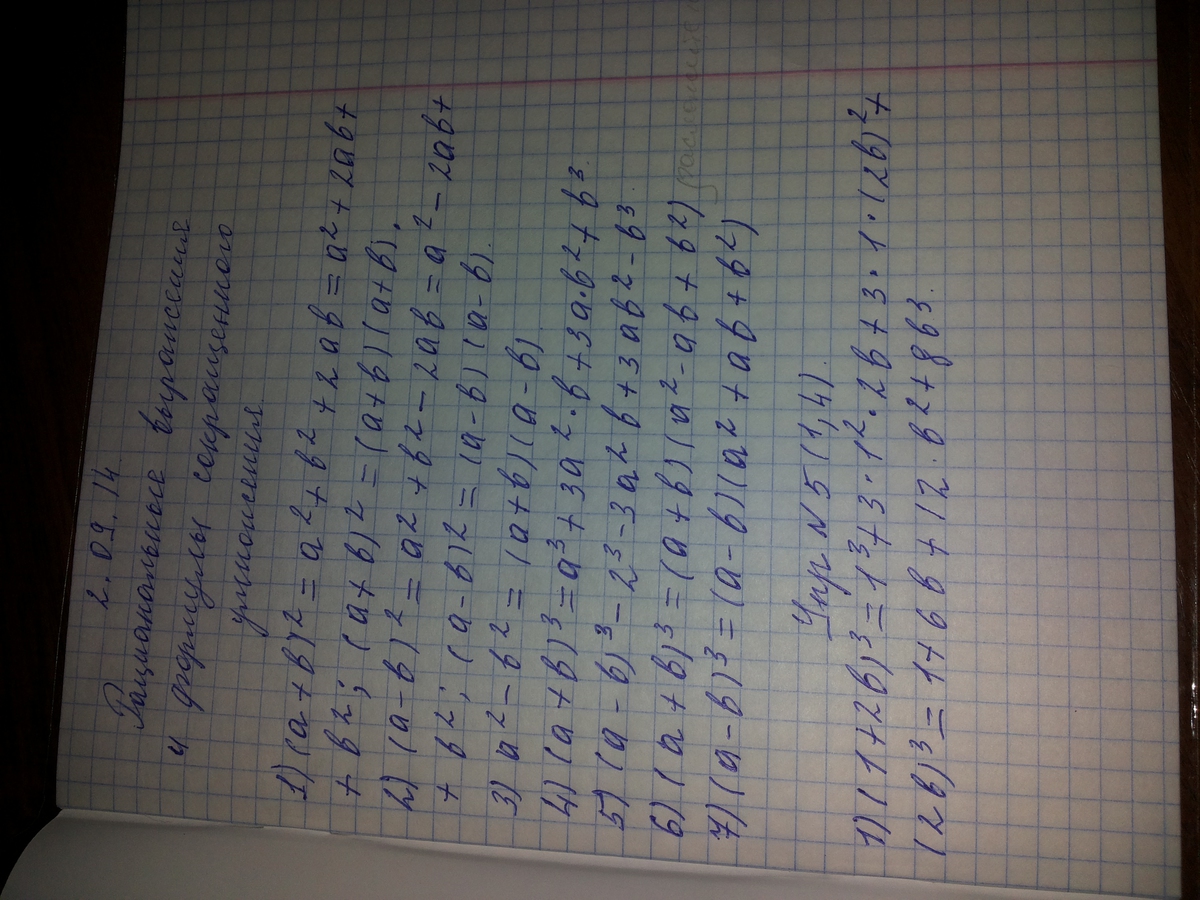 2.09.14
Рациональные выражения
и формулы сокращенного
умножения.
1) (a+b)² = a²+b²+2ab = a²+2ab+
+b²; (a+b)² = (a+b)(a+b).
2) (a-b)² = a²+b²-2ab = a²-2ab+
+b²; (a-b)² = (a-b)(a-b).
3) a²-b² = (a+b)(a-b)
4) (a+b)³ = a³+3a²·b+3a·b²+b³.
5) (a-b)³-2³-3a²b+3ab²-b³
6) (a+b)³ = (a+b)(a²-ab+b²)
7) (a-b)³ = (a-b)(a²+ab+b²)
Упр N 5 (1,4).
1) (1+2b)³ = 1³+3·1²·2b+3·1·(2b)²+
(2b)³ = 1+6b+12·b²+8b³.